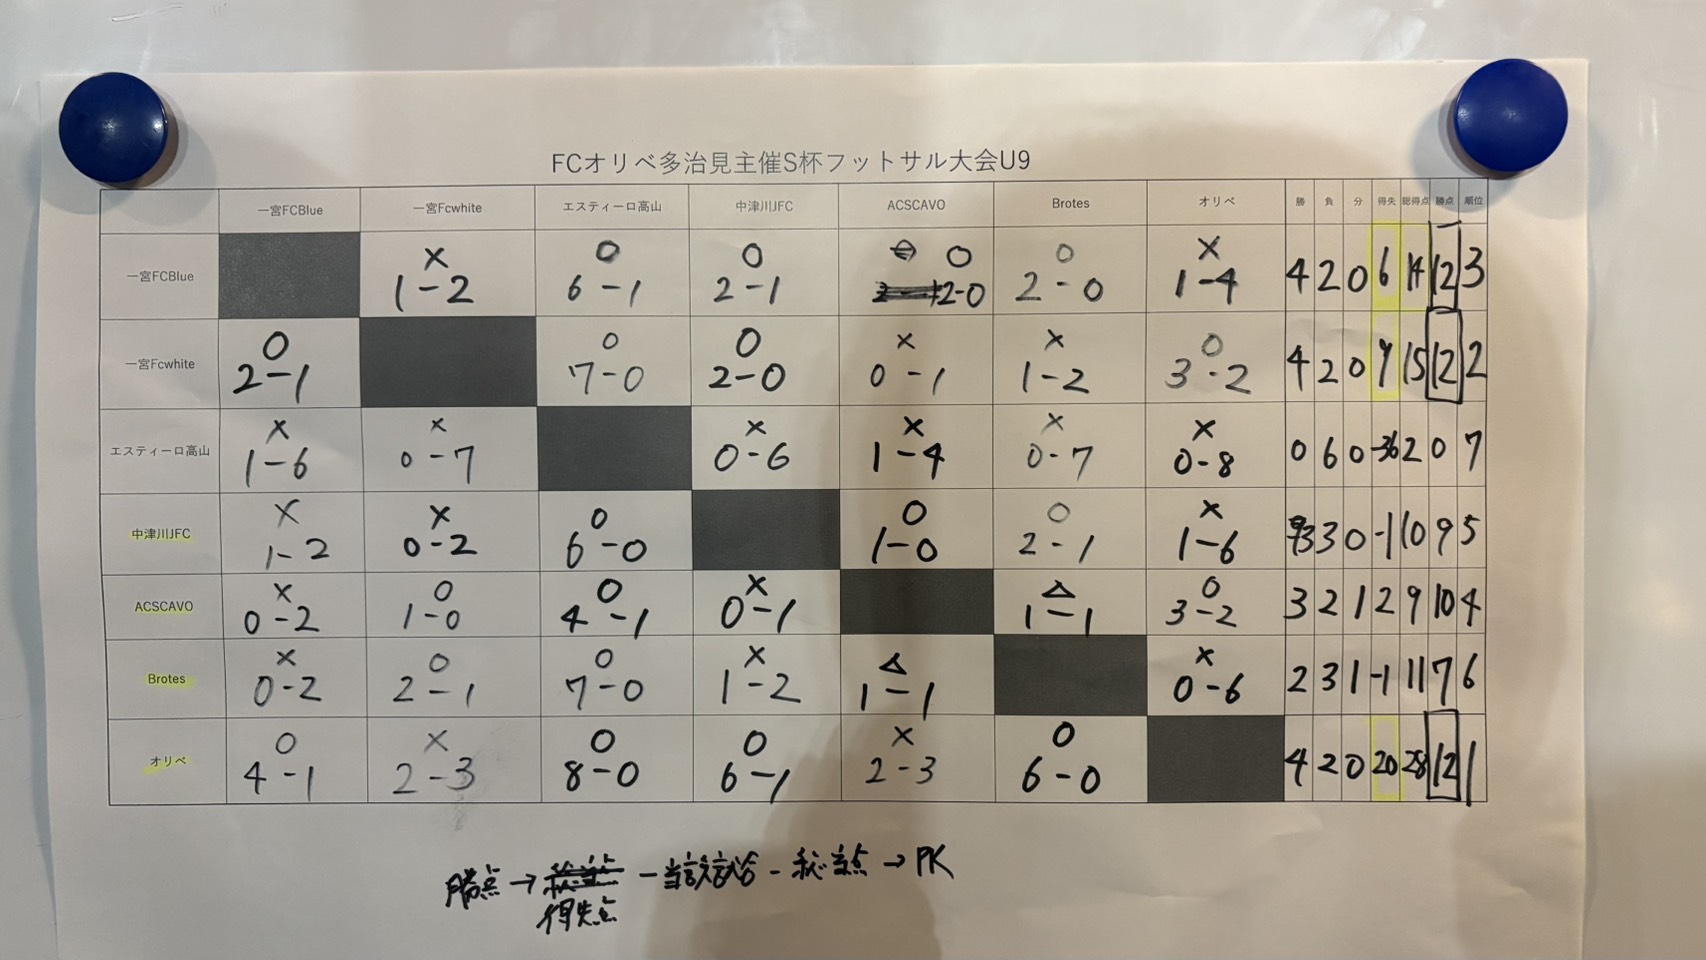 FCオリベ多治見主催S杯フットサル大会U9
一宮FCBlue 一宮Fcwhite エスティーロ高山 中津川JFC ACSCAVO Brotes オリベ 勝 負 分 得失 総得点 勝点 順位
一宮FCBlue × 1-2 ○ 6-1 ○ 2-1 ○ 2-0 ○ 2-0 × 1-4 4 2 0 6 14 12 3
一宮Fcwhite ○ 2-1 ○ 7-0 ○ 2-0 × 0-1 × 1-2 ○ 3-2 4 2 0 9 15 12 2
エスティーロ高山 × 1-6 × 0-7 × 0-6 × 1-4 × 0-7 × 0-8 0 6 0 -36 2 0 7
中津川JFC × 1-2 × 0-2 ○ 6-0 ○ 1-0 ○ 2-1 × 1-6 3 3 0 -1 10 9 5
ACSCAVO × 0-2 ○ 1-0 ○ 4-1 × 0-1 △ 1-1 ○ 3-2 3 2 1 2 9 10 4
Brotes × 0-2 ○ 2-1 ○ 7-0 × 1-2 △ 1-1 × 0-6 2 3 1 -1 11 7 6
オリベ ○ 4-1 × 2-3 ○ 8-0 ○ 6-1 × 2-3 ○ 6-0 4 2 0 20 28 12 1
勝点→ - 当該試合 - 総得点→PK
得失点